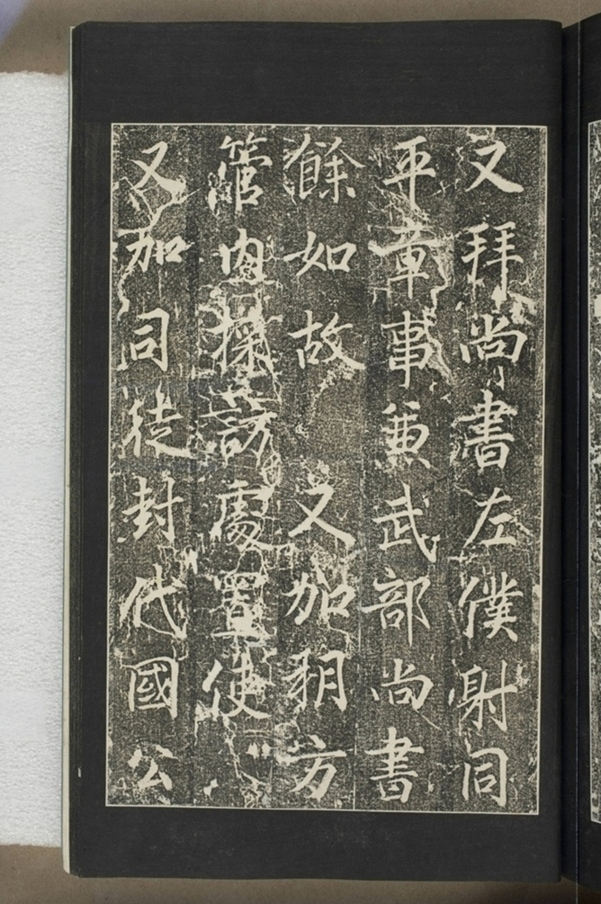 又拜尚書左僕射同
平章事兼武部尚書
餘如故 又加朔方
管內採訪處置使
又加司徒封代國公